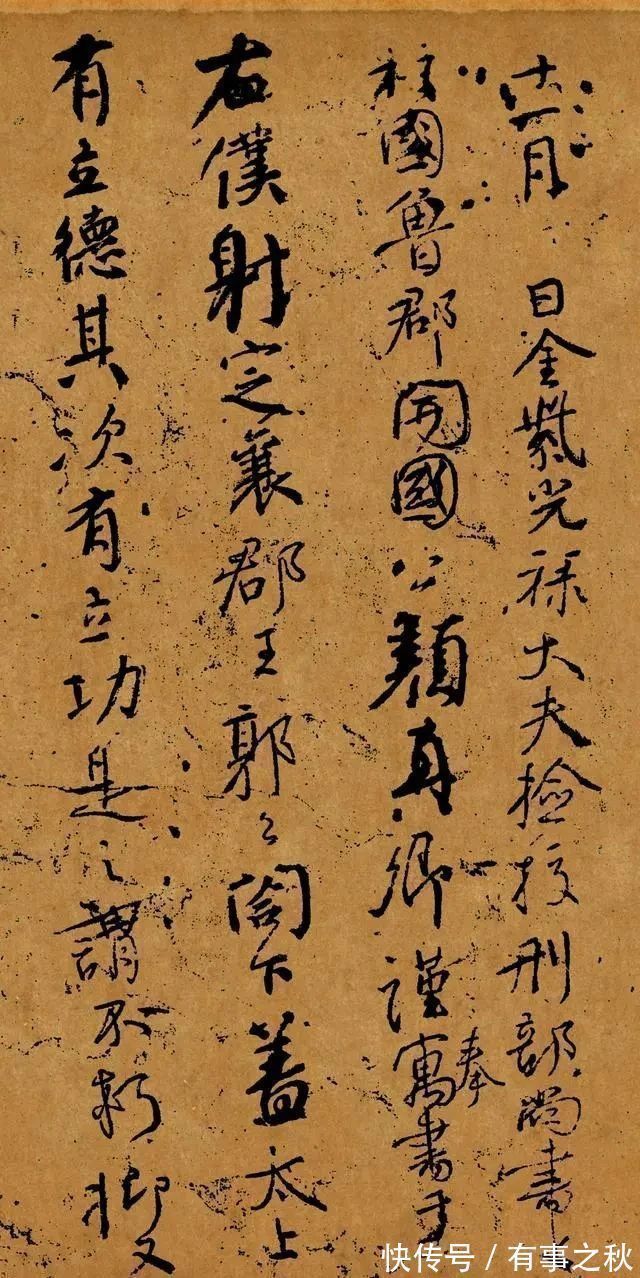 十一月 日金紫光祿大夫檢校刑部尚書上
柱國魯郡開國公顏真卿謹奉寓書于
右僕射定襄郡王郭公閣下蓋太上
有立德其次有立功是之謂不朽抑又
快传号 / 有事之秋